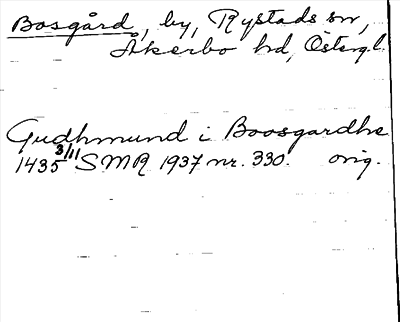 Bosgård, by, Rystads sn,
Åkerbo hd, Östergl.
Gudhmund i Boosgardhe
1435 3/11 SMR 1937 nr. 330. orig.